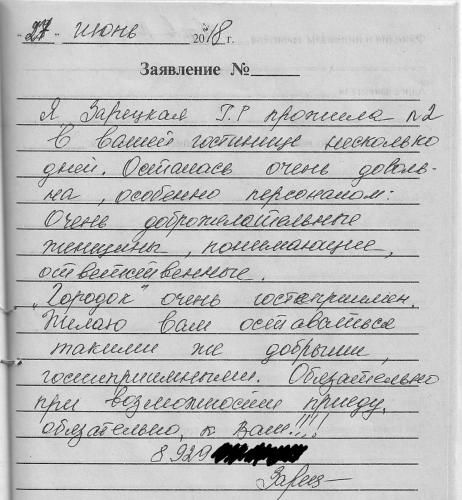 "27" июнь 2018 г.
Заявление №
Я Зарецкая Г.Р прожила п2
в вашей гостинице несколько
дней. Осталась очень доволь-
на, особенно персоналом:
Очень доброжелательные
женщины, понимающие,
ответственные.
„Городок" очень гостеприимен.
Желаю вам оставаться
такими же добрыми,
гостиприимными. Обязательно
при возможности приеду,
обязательно, к Вам!!!!
8 929
Зарец